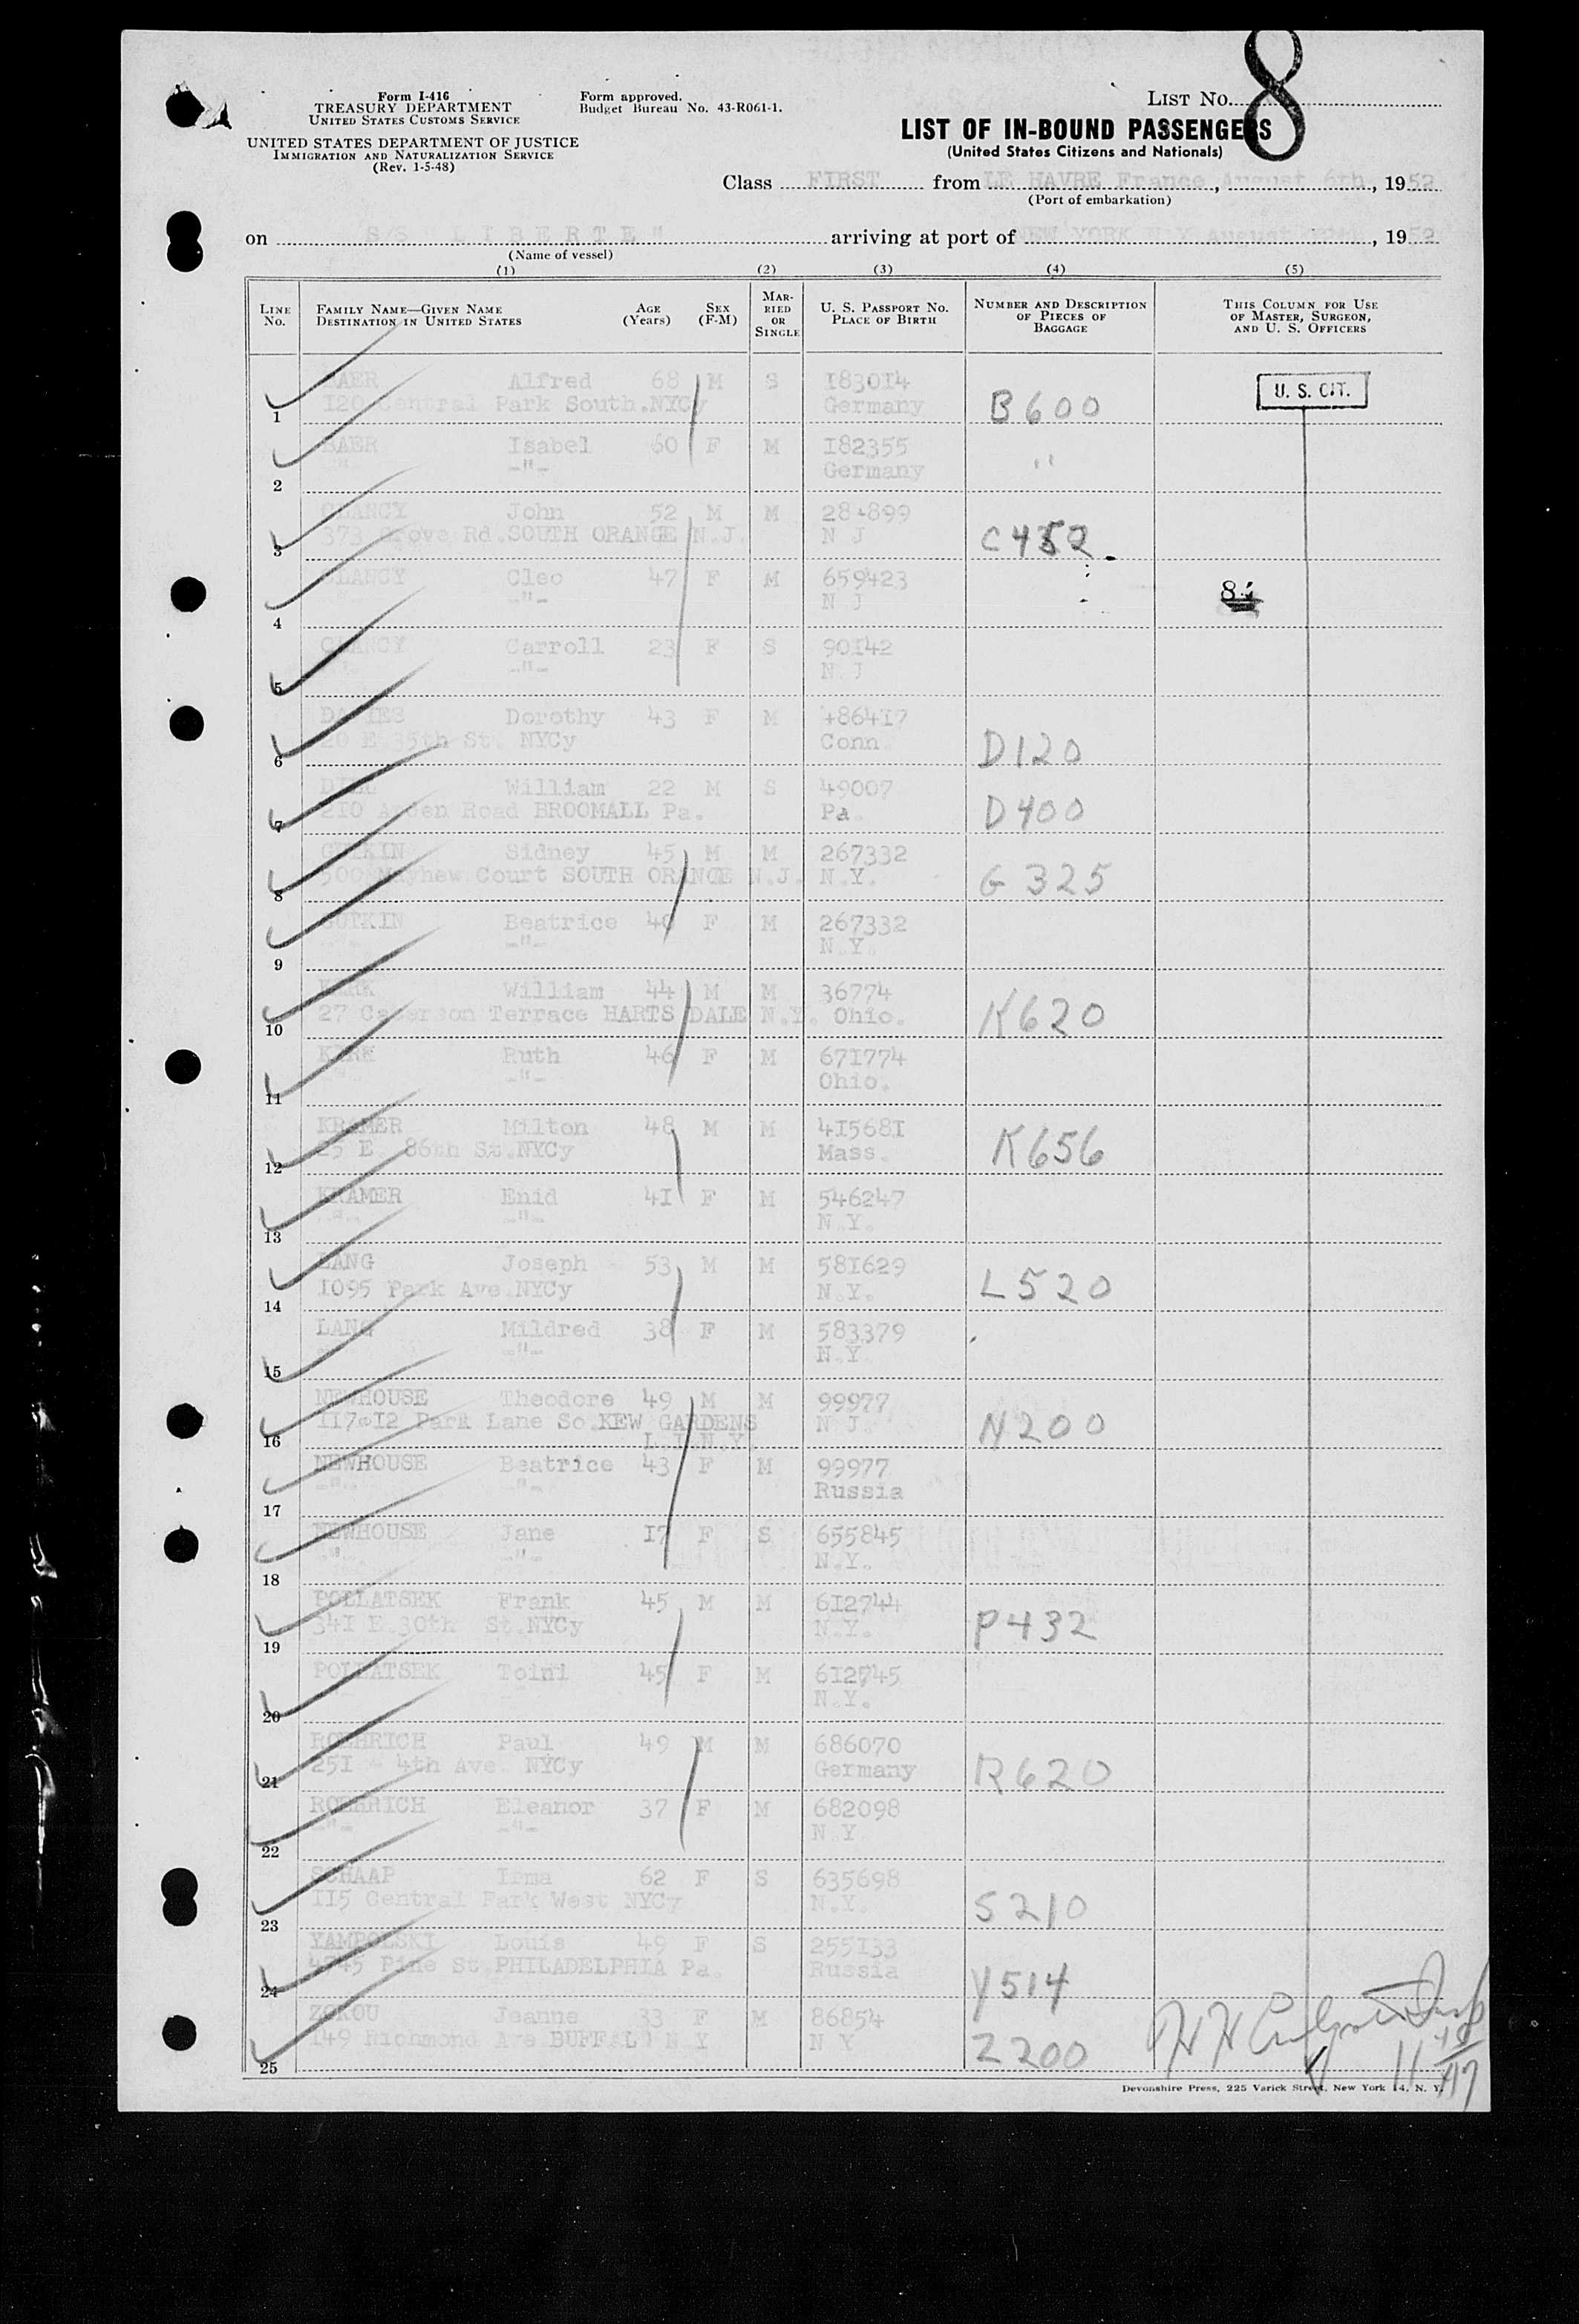 8
Form I-416
TREASURY DEPARTMENT
UNITED STATES CUSTOMS SERVICE
UNITED STATES DEPARTMENT OF JUSTICE
IMMIGRATION AND NATURALIZATION SERVICE
(Rev. 1-5-48)
Form approved.
Budget Bureau No. 43-R061-1.
LIST No.
LIST OF IN-BOUND PASSENGERS
(United States Citizens and Nationals)
Class FIRST from LE HAVRE France, August 6th, 1952
(Port of embarkation)
on S/S " L I B E R T E " arriving at port of NEW YORK N.Y. August , 1952
(Name of vessel)
(1) (2) (3) (4) (5)
LINE No.
FAMILY NAME—GIVEN NAME
DESTINATION IN UNITED STATES
AGE (Years)
SEX (F-M)
MARRIED OR SINGLE
U. S. PASSPORT No.
PLACE OF BIRTH
NUMBER AND DESCRIPTION OF PIECES OF BAGGAGE
THIS COLUMN FOR USE OF MASTER, SURGEON, AND U. S. OFFICERS
BAER Alfred 68 M S 183014 U. S. CIT.
1 120 Central Park South.NYCy Germany B600
BAER Isabel 60 F M 182355
2 -"- -"- Germany "
CLANCY John 52 M M 28 899
3 373 Grove Rd.SOUTH ORANGE N.J. N J C452
CLANCY Cleo 47 F M 659423
4 -"- -"- N J
CLANCY Carroll 23 F S 90142
5 -"- -"- N J
DAVIES Dorothy 43 F M 486417
6 20 E.35th St. NYCy Conn. D120
DILL William 22 M S 49007
7 210 Arden Road BROOMALL Pa. Pa. D400
GUTKIN Sidney 45 M M 267332
8 500 Mayhew Court SOUTH ORANGE N.J. N.Y. G325
GUTKIN Beatrice 40 F M 267332
9 -"- -"- N.Y.
KERK William 44 M M 36774
10 27 Terrace HARTSDALE N.Y. Ohio. K620
Ruth 46 F M 671774
11 -"- -"- Ohio.
KRAMER Milton 48 M M 415681
12 25 E. 86th St.NYCy Mass. K656
KRAMER Enid 41 F M 546247
13 -"- -"- N.Y.
LANG Joseph 53 M M 581629
14 1095 Park Ave.NYCy N.Y. L520
LANG Mildred 38 F M 583379
15 -"- N.Y.
NEWHOUSE Theodore 49 M M 99977
16 117-12 Park Lane So.KEW GARDENS L.I.N.Y. N J. N200
NEWHOUSE Beatrice 43 F M 99977
17 -"- -"- Russia
NEWHOUSE Jane 17 F S 655845
18 -"- -"- N.Y.
POLLATSEK Frank 45 M M 612744
19 341 E.30th St.NYCy N.Y. P432
POLLATSEK Toini 45 F M 612745
20 N.Y.
ROEHRICH Paul 49 M M 686070
21 251 - 4th Ave. NYCy Germany R620
ROEHRICH Eleanor 37 F M 682098
22 -"- -"- N.Y.
SCHAAP Irma 62 F S 635698
23 115 Central Park West NYCy N.Y. S210
YAMPOLSKI Louis 49 F S 255133
24 4745 Pine St.PHILADELPHIA Pa. Russia Y514
ZOROU Jeanne 33 F M 86854
25 149 Richmond Ave BUFFALO N Y N Y Z200
Devonshire Press, 225 Varick Street, New York 14, N. Y.